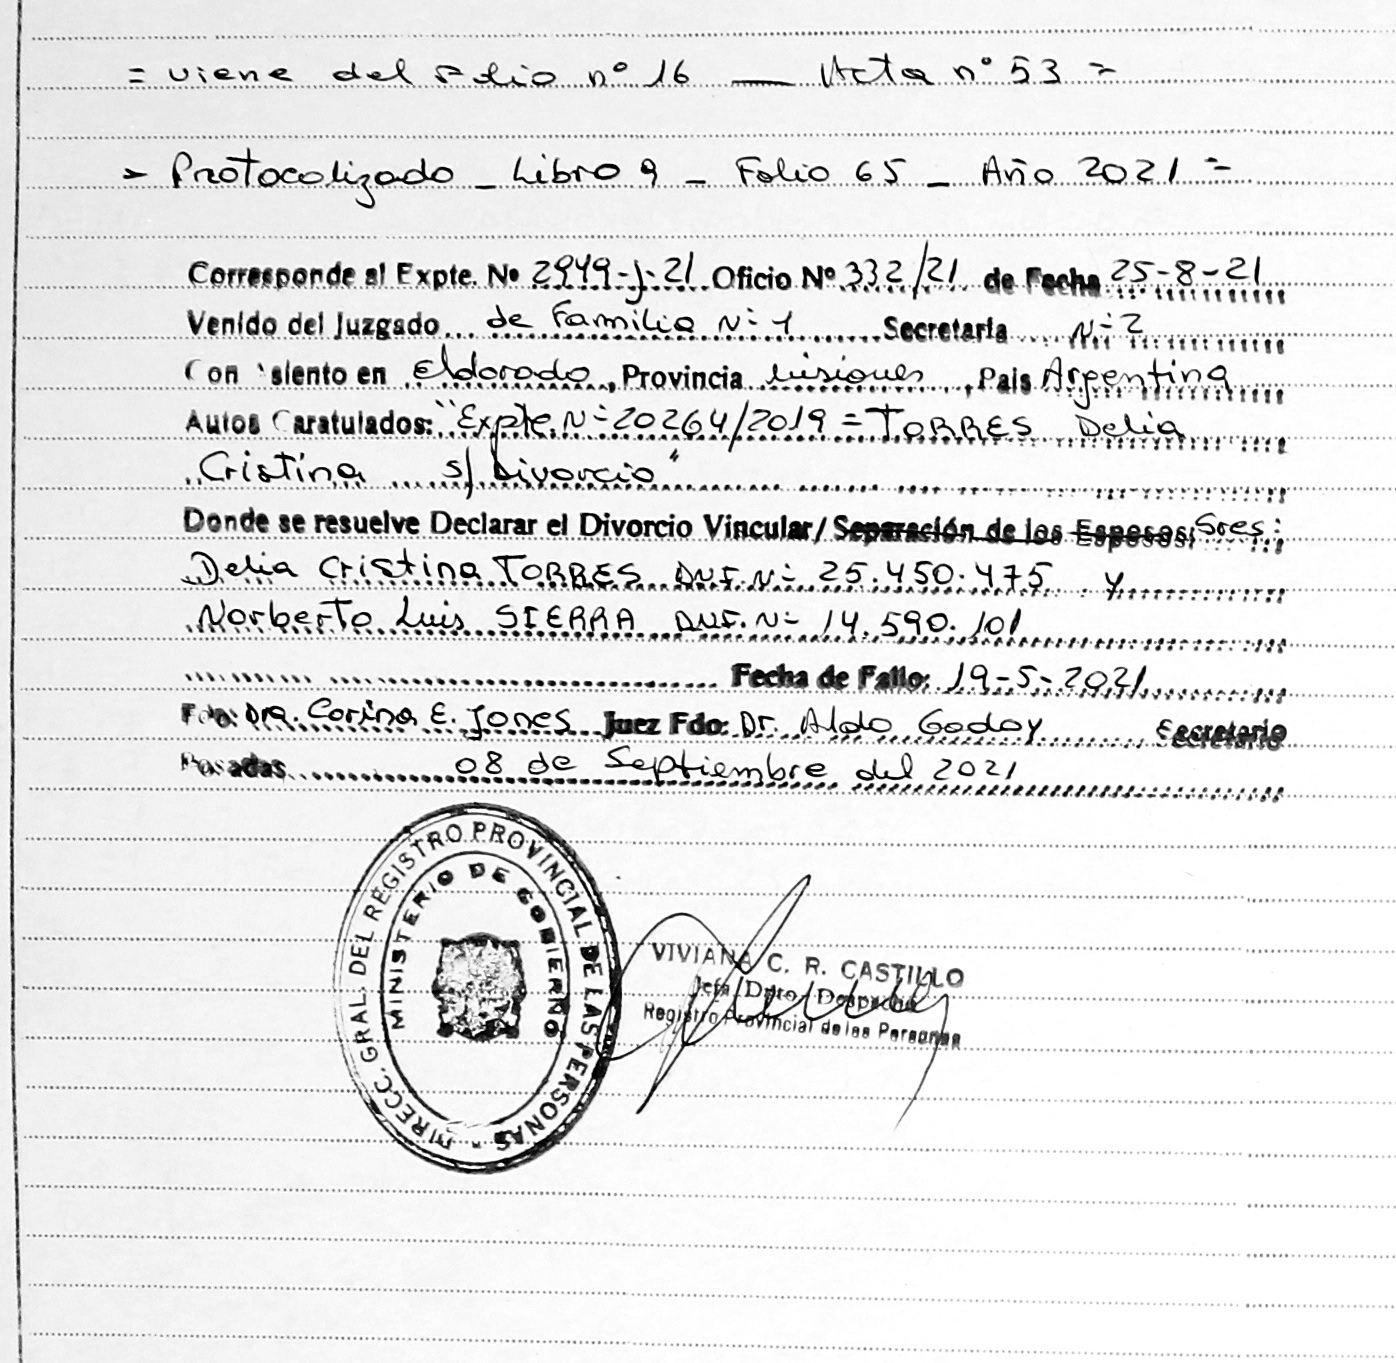 = viene del Folio nº 16 — Acta nº 53 =
= Protocolizado - Libro 9 - Folio 65 - Año 2021 =
Corresponde al Expte. Nº 2949-J-21 Oficio Nº 332/21 de Fecha 25-8-21
Venido del Juzgado de Familia Nº 1 Secretaria Nº 2
Con siento en Eldorado, Provincia Misiones, Pais Argentina
Autos Caratulados: "Expte. Nº 20264/2019 = TORRES Delia
Cristina s/ Divorcio"
Donde se resuelve Declarar el Divorcio Vincular/ Separación de los Esposos: Sres:
Delia Cristina TORRES DNI. Nº 25.450.475 y
Norberto Luis SIERRA DNI. Nº 14.590.101
Fecha de Fallo: 19-5-2021
Fdo: Dra. Corina E. Jones Juez Fdo: Dr. Aldo Godoy Secretario
Posadas 08 de Septiembre del 2021
DIRECC. GRAL. DEL REGISTRO PROVINCIAL DE LAS PERSONAS
MINISTERIO DE GOBIERNO
VIVIANA C. R. CASTILLO
Jefa Dpto. Despacho
Registro Provincial de las Personas